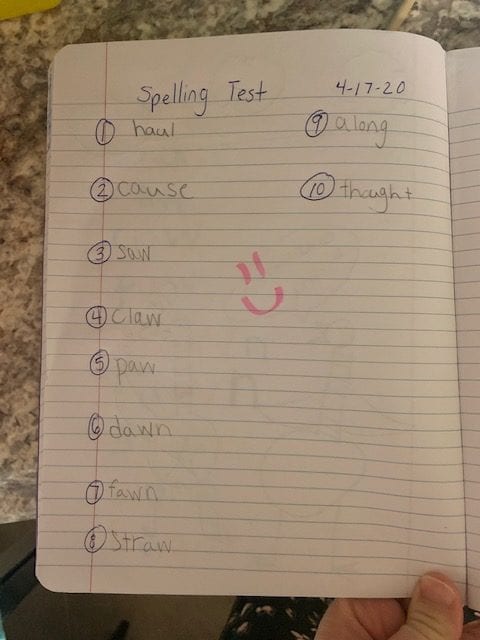 Spelling Test 4-17-20
1 haul
2 cause
3 saw
4 claw
5 paw
6 dawn
7 fawn
8 Straw
9 along
10 thought